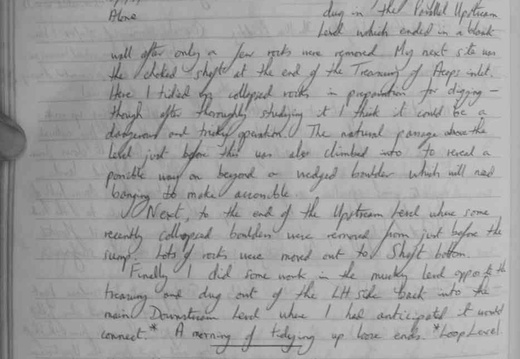 Alone dug in the Parallel Upstream
Level which ended in a blank
wall after only a few rocks were removed My next site was
the choked shaft at the end of the Treasury of Aeops inlet.
Here I tidied up collapsed rocks in preparation for digging –
though after thoroughly studying it I think it could be a
dangerous and tricky operation. The natural passage above the
level just before this was also climbed into to reveal a
possible way on beyond a wedged boulder which will need
banging to make accessible.
Next, to the end of the Upstream Level where some
recently collapsed boulders were removed from just before the
sump. Lots of rocks were moved out to Shaft bottom.
Finally I did some work in the murky level opposite the
treasury and dug out of the LH side back into the
main Downstream Level where I had anticipated it would
connect.* A morning of tidying up loose ends. *Loop Level.